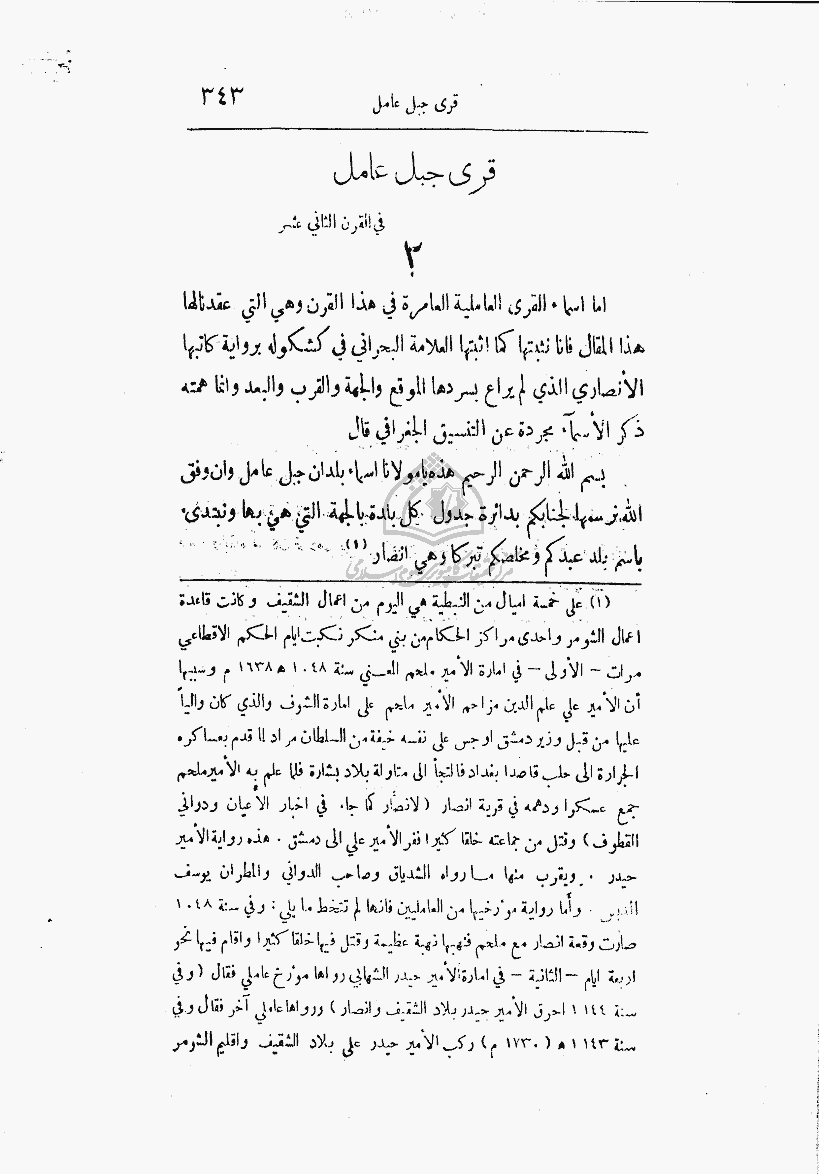 قرى جبل عامل ٣٤٣
قرى جبل عامل
في القرن الثاني عشر
٢
اما اسماء القرى العاملية العامرة في هذا القرن وهي التي عقدنا لها
هذا المقال فانا نثبتها كما اثبتها العلامة البحراني في كشكوله برواية كاتبها
الأنصاري الذي لم يراع بسردها الموقع والجهة والقرب والبعد وانما همته
ذكر الأسمآء مجردة عن التنسيق الجغرافي قال
بسم الله الرحمن الرحيم هذه يا مولانا اسماء بلدان جبل عامل وان وفق
الله نرسمها لجنابكم بدائرة جدول كل بلدة بالجهة التي هي بها ونبتدىء
باسم بلد عبدكم ومخلصكم تبركا وهي انصار (١)
(١) على خمسة اميال من النبطية هي اليوم من اعمال الشقيف وكانت قاعدة
اعمال الشومر واحدى مراكز الحكام من بني منكر نكبت ايام الحكم الاقطاعي
مرات – الأولى – في امارة الأمير ملحم المعني سنة ١٠٤٨ ه ١٦٣٨ م وسببها
أن الأمير علي علم الدين مزاحم الأمير ملحم على امارة الشوف والذي كان والياً
عليها من قبل وزير دمشق اوجس على نفسه خيفة من السلطان مراد لما قدم بعساكره
الجرارة الى حلب قاصدا بغداد فالتجأ الى متاولة بلاد بشارة فلما علم به الأمير ملحم
جمع عسكرا ودهمه في قرية انصار (لانصار كما جاء في اخبار الأعيان ودواني
القطوف) وقتل من جماعته خلقا كثيرا نفر الأمير علي الى دمشق . هذه رواية الأمير
حيدر . ويقرب منها ما رواه الشدياق وصاحب الدواني والمطران يوسف
الدبس . وأما رواية مؤرخيها من العامليين فانها لم تتخط ما يلي : وفي سنة ١٠٤٨
صارت وقعة انصار مع ملحم فنهبها نهبة عظيمة وقتل فيها خلقا كثيرا واقام فيها نحو
اربعة ايام – الثانية – في امارة الأمير حيدر الشهابي رواها مؤرخ عاملي فقال (وفي
سنة ١١٤٤ احرق الأمير حيدر بلاد الشقيف وانصار) ورواها عاملي آخر فقال وفي
سنة ١١٤٣ ه (١٧٣٠ م) ركب الأمير حيدر على بلاد الشقيف واقليم الشومر